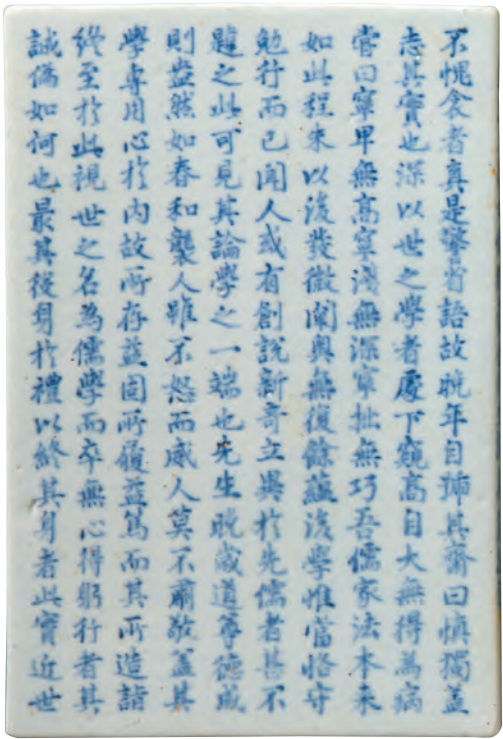 不愧食者真是警省語故晩年自號其齋曰愼獨蓋
志其實也深以世之學者處下窺高自大無得為病
嘗曰寧卑無高寧淺無深寧拙無巧吾儒家法本來
如此程朱以後發微闡奥無復餘蘊後學惟當恪守
勉行而已聞人或有創說新奇立異於先儒者甚不
韙之此可見其論學之一端也先生晩歲道尊德成
則盎然如春和襲人雖不怒而威人莫不肅敬蓋其
學專用心於内故所存益固所履益篤而其所造詣
終至於此視世之名為儒學而卒無心得躬行者其
誠僞如何也最其後身於禮以終其身者此實近世